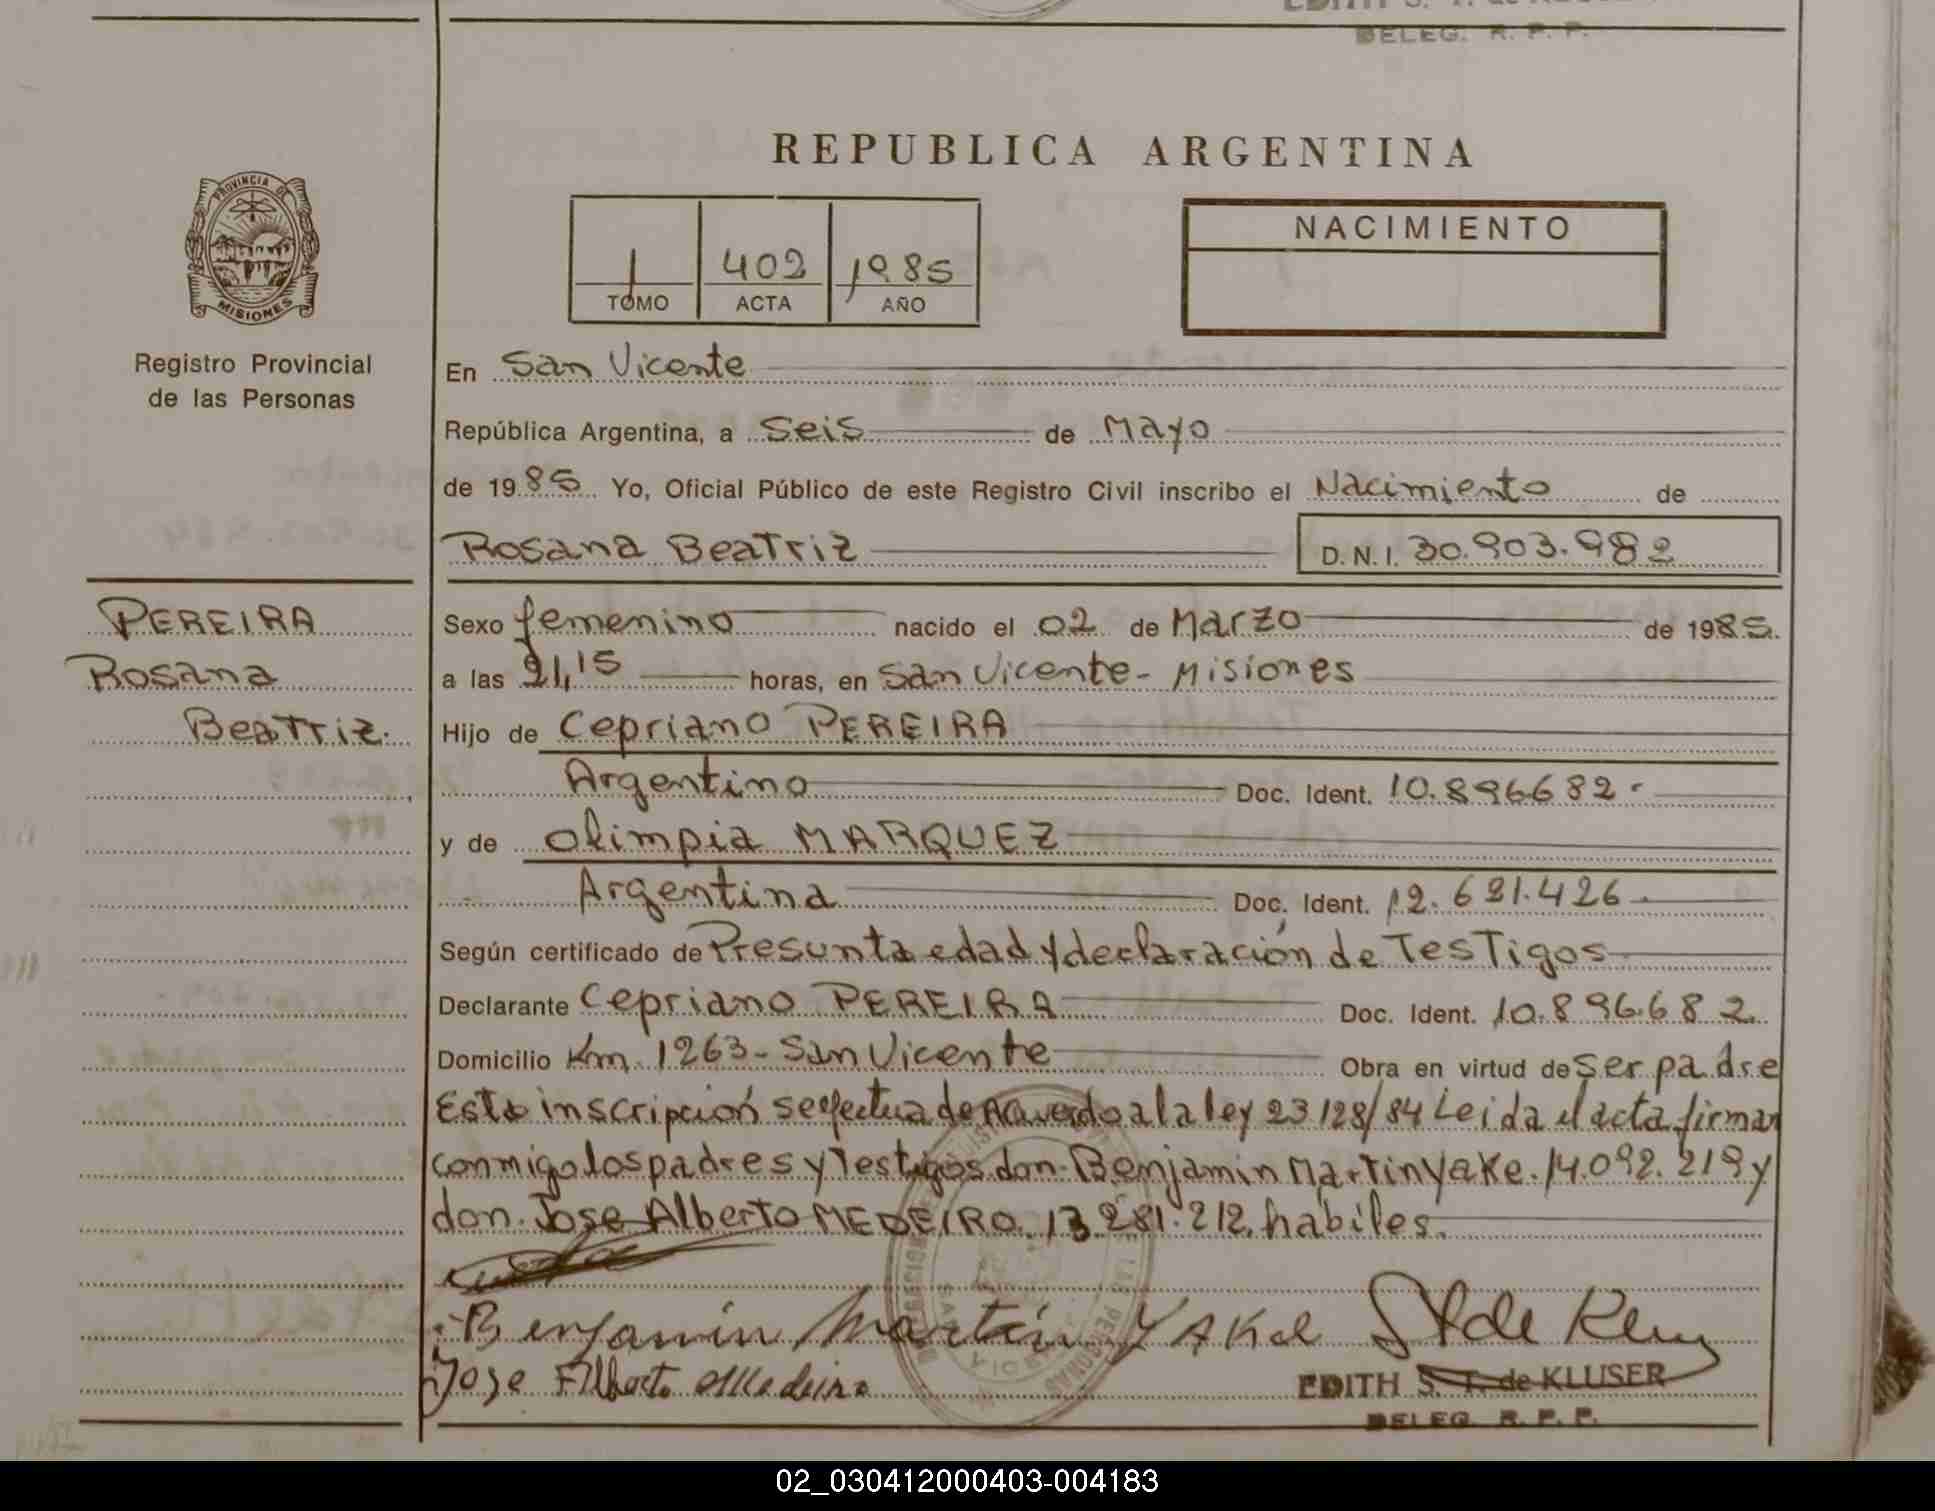 DELEG. R. P. P.
REPUBLICA ARGENTINA
PROVINCIA DE
MISIONES
Registro Provincial
de las Personas
1 402 1985
TOMO ACTA AÑO
NACIMIENTO
En San Vicente
República Argentina, a seis de Mayo
de 1985 Yo, Oficial Público de este Registro Civil inscribo el Nacimiento de
Rosana Beatriz D.N.I. 30.903.982
PEREIRA
Rosana
Beatriz.
Sexo femenino nacido el 02 de Marzo de 1985.
a las 21,15 horas, en San Vicente - Misiones
Hijo de Cepriano PEREIRA
Argentino Doc. Ident. 10.896682.
y de Olimpia MARQUEZ
Argentina Doc. Ident. 12.621.426.
Según certificado de Presunta edad y declaración de Testigos
Declarante Cepriano PEREIRA Doc. Ident. 10.896.682.
Domicilio Km. 1263 - San Vicente Obra en virtud de ser padre
Esta inscripción se efectua de Acuerdo a la ley 23128/84 Leida el acta firman
conmigo los padres y Testigos don. Benjamin Martin Yake. 14.092.219 y
don. Jose Alberto MEDEIRO. 13.281.212. habiles.
Benjamin Martín Yakel
Jose Alberto Medeiro
EDITH S. T. de KLUSER
DELEG. R. P. P.
02_030412000403-004183